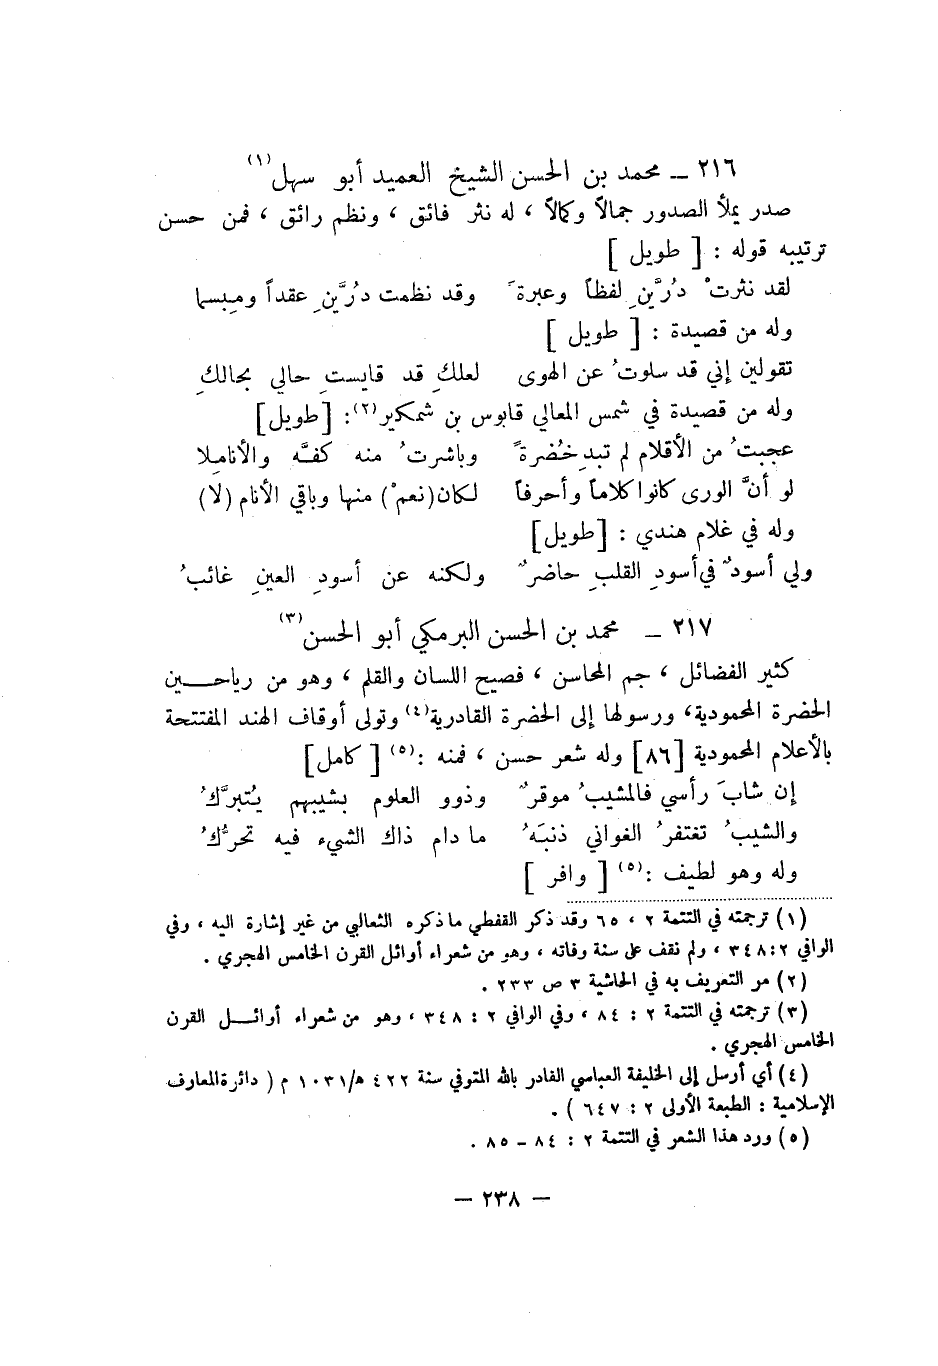 ٢١٦ ــ محمد بن الحسن الشيخ العميد أبو سهل (١)
صدر يملأ الصدور جمالاً وكمالاً ، له نثر فائق ، ونظم رائق ، فمن حسن
ترتيبه قوله : [ طويل ]
لقد نثرتْ دُرَّينِ لفظاً وعبرةً وقد نظمت دُرَّينِ عقداً ومبسِما
وله من قصيدة : [ طويل ]
تقولين إني قد سلوتُ عن الهوى لعلكِ قد قايستِ حالي بحالكِ
وله من قصيدة في شمس المعالي قابوس بن شمكير (٢): [طويل]
عجبتُ من الأقلام لم تبدِ خُضرةً وباشرتُ منه كفَّه والأناملا
لو أنَّ الورى كانوا كلاماً وأحرفاً لكان (نعمْ) منها وباقي الأنام (لا)
وله في غلام هندي : [طويل]
ولي أسودٌ في أسودِ القلبِ حاضرٌ ولكنه عن أسودِ العينِ غائبُ
٢١٧ ــ محمد بن الحسن البرمكي أبو الحسن (٣)
كثير الفضائل ، جم المحاسن ، فصيح اللسان والقلم ، وهو من رياحــــين
الحضرة المحمودية، ورسولها إلى الحضرة القادرية (٤) وتولى أوقاف الهند المفتتحة
بالأعلام المحمودية [٨٦] وله شعر حسن ، فمنه : (٥) [ كامل]
إن شابَ رأسي فالمشيبُ موقرٌ وذوو العلوم بشيبهم يُتبرَّكُ
والشيبُ تغتفرُ الغواني ذنبَهُ ما دام ذاك الشيء فيه تحرُّكُ
وله وهو لطيف : (٥) [ وافر ]
(١) ترجمته في التتمة ٢ ، ٦٥ وقد ذكر القفطي ما ذكره الثعالبي من غير إشارة اليه ، وفي
الوافي ٢: ٣٤٨ ، ولم نقف على سنة وفاته ، وهو من شعراء أوائل القرن الخامس الهجري .
(٢) مر التعريف به في الحاشية ٣ ص ٢٣٣ .
(٣) ترجمته في التتمة ٢ : ٨٤ ، وفي الوافي ٢ : ٣٤٨ ، وهو من شعراء أوائــــل القرن
الخامس الهجري .
(٤) أي أرسل إلى الخليفة العباسي القادر بالله المتوفي سنة ٤٢٢ ه/١٠٣١ م ( دائرة المعارف
الإسلامية : الطبعة الأولى ٢ : ٦٤٧ ) .
(٥) ورد هذا الشعر في التتمة ٢ : ٨٤ – ٨٥ .
— ٢٣٨ —